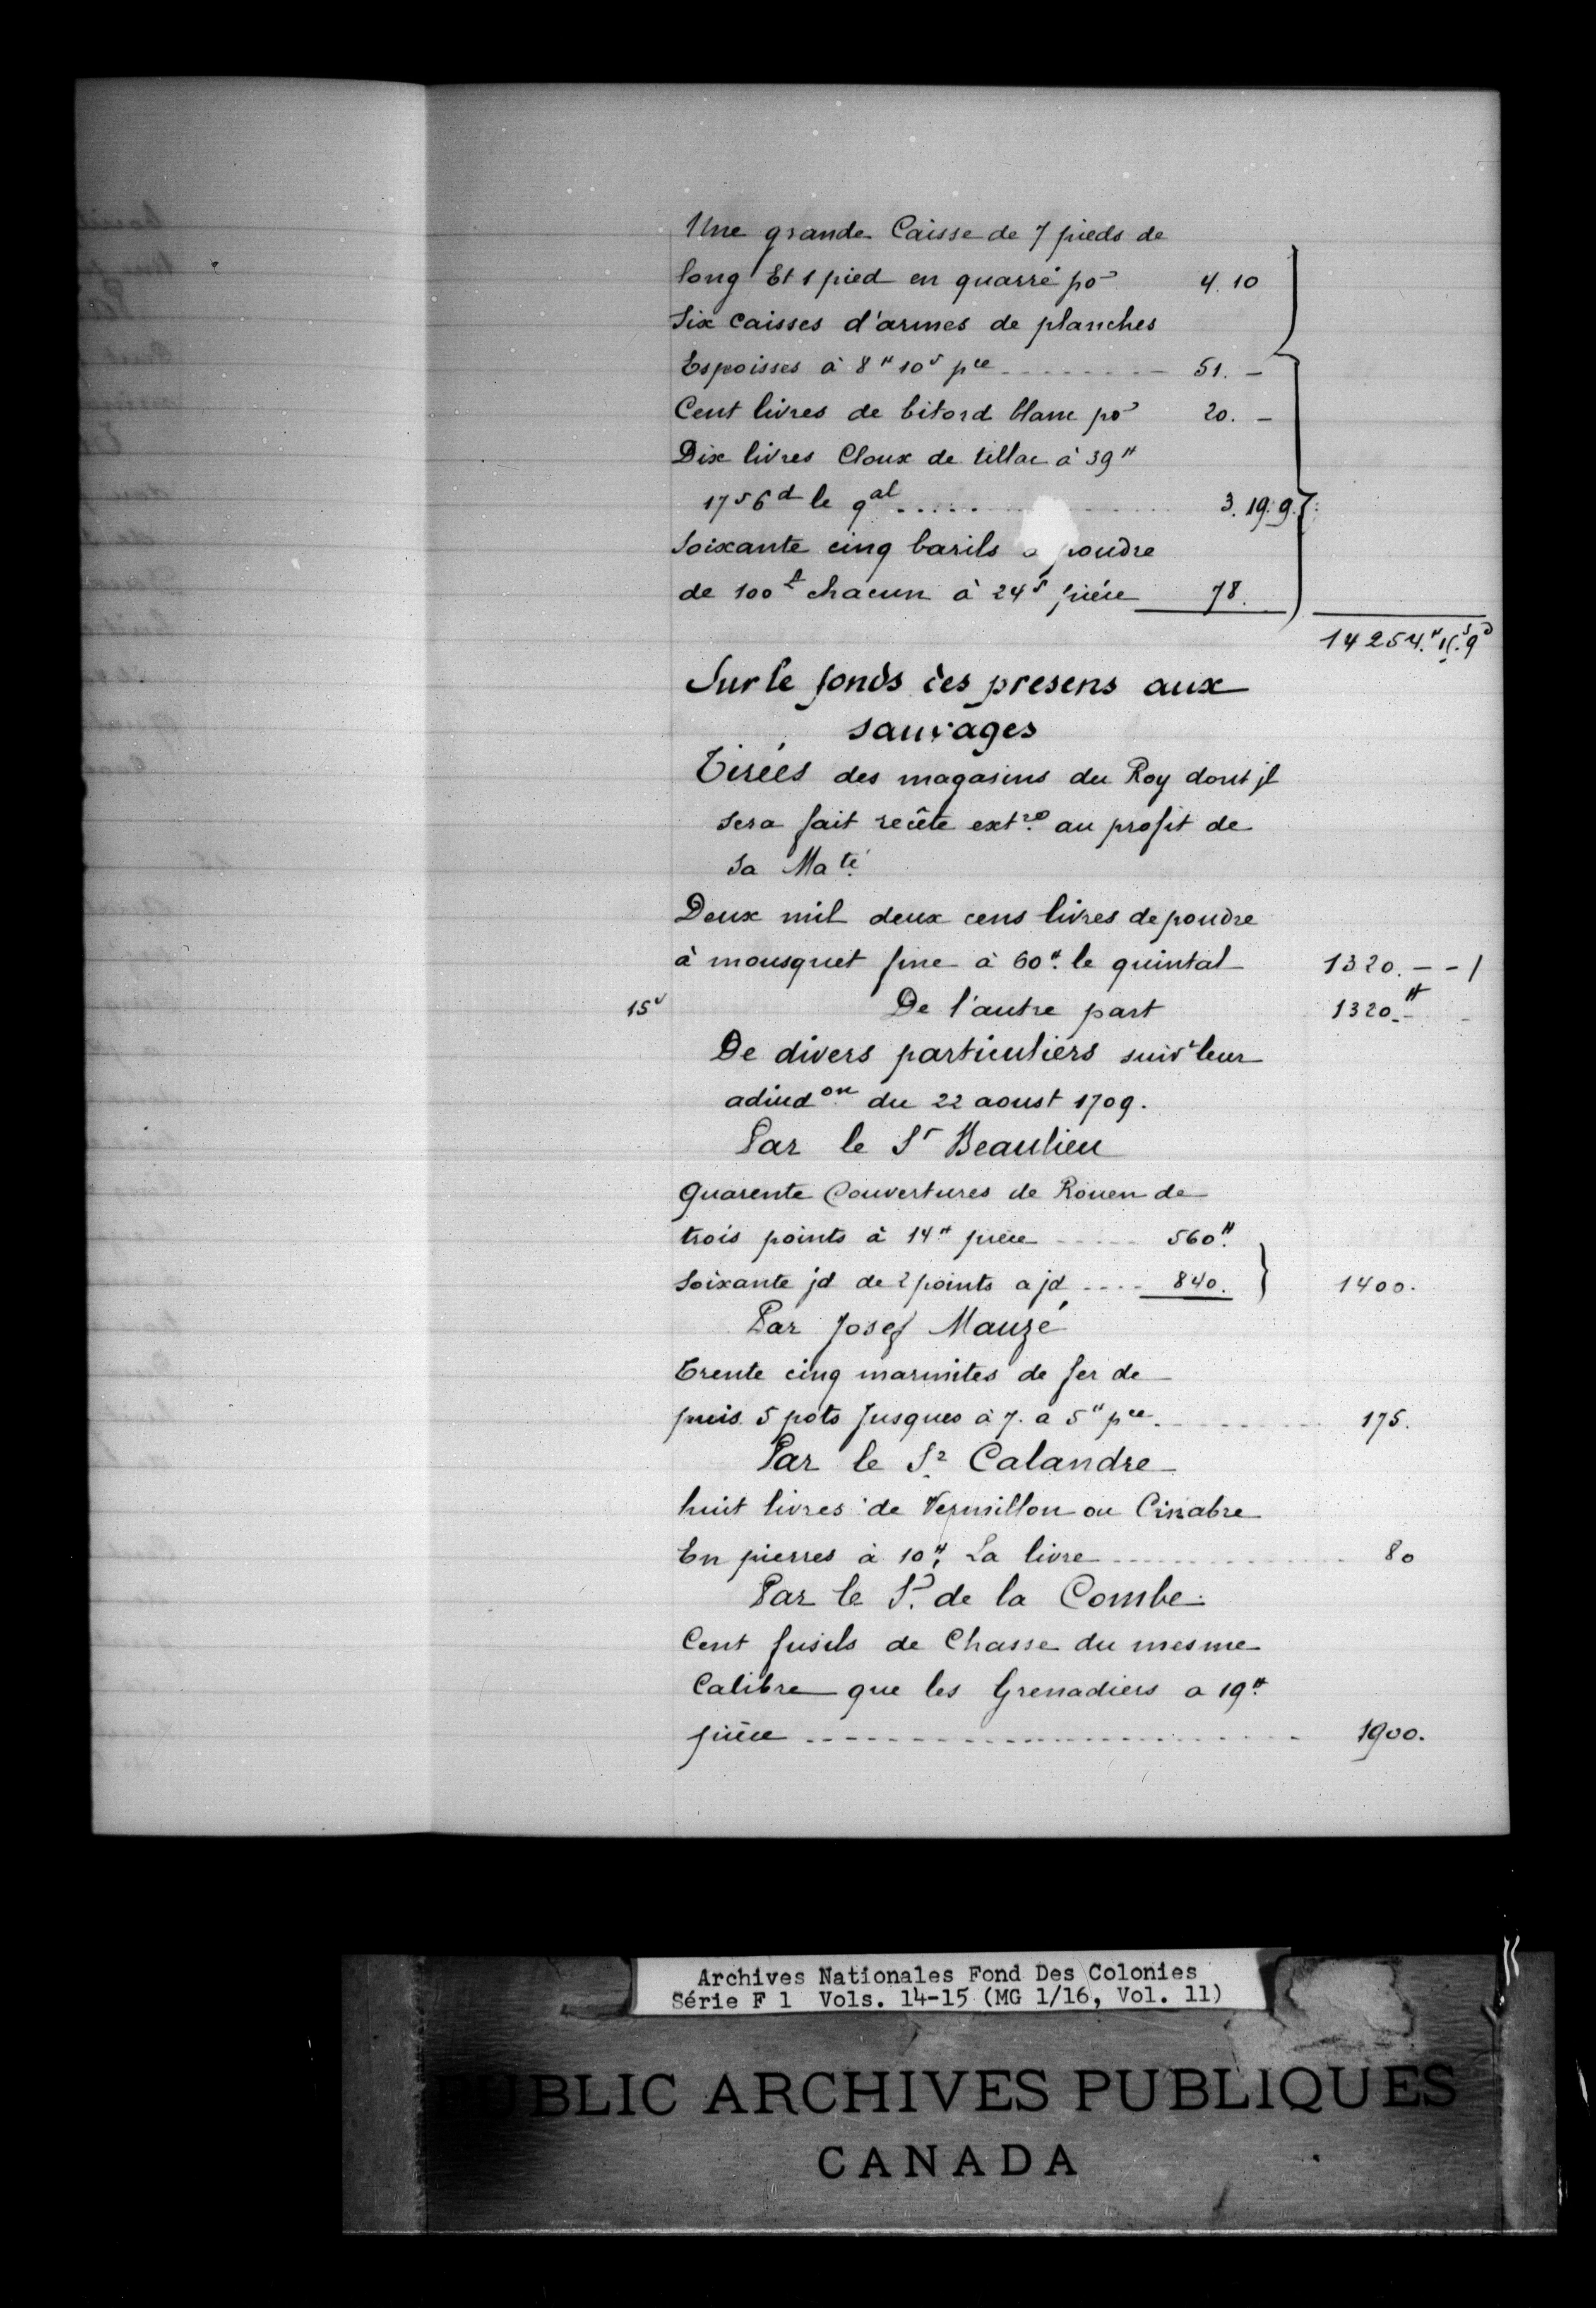 Une grande Caisse de 7 pieds de
long Et 1 pied en quarré po 4. 10
Six caisses d'armes de planches
Espoisses à 8# 10s pce ........ 51. -
Cent livres de bitord blanc po 20. -
Dix livres Cloux de tillac à 39#
17s 6d le qal ..... 3. 19. 9.
Soixante cinq barils a poudre
de 100l chacun à 24s piéce 78.
14254.#
Sur le fonds des presens aux
sauvages
Tirées des magasins du Roy dont jl
sera fait recête extre au profit de
Sa Maté
Deux mil deux cens livres de poudre
à mousquet fine à 60#. le quintal 1320. - -
15v De l'autre part 1320.# - -
De divers particuliers suivt leur
adiudon du 22 aoust 1709.
Par le Sr Beaulieu
Quarente Couvertures de Rouen de
trois points à 14# piéce ..... 560#.
Soixante jd de 2 points a jd .... 840. 1400.
Par Josef Mauzé
Trente cinq marmites de fer de
puis 5 pots Jusques à 7. a 5# pce ........ 175.
Par le Sr Calandre
huit livres de Vermillon ou Cinabre
En pierres à 10# La livre ............ 80
Par le Sr de la Combe
Cent fusils de Chasse du mesme
Calibre que les Grenadiers a 19#
piéce ........................ 1900.
Archives Nationales Fond Des Colonies
Série F 1 Vols. 14-15 (MG 1/16, Vol. 11)
PUBLIC ARCHIVES PUBLIQUES
CANADA